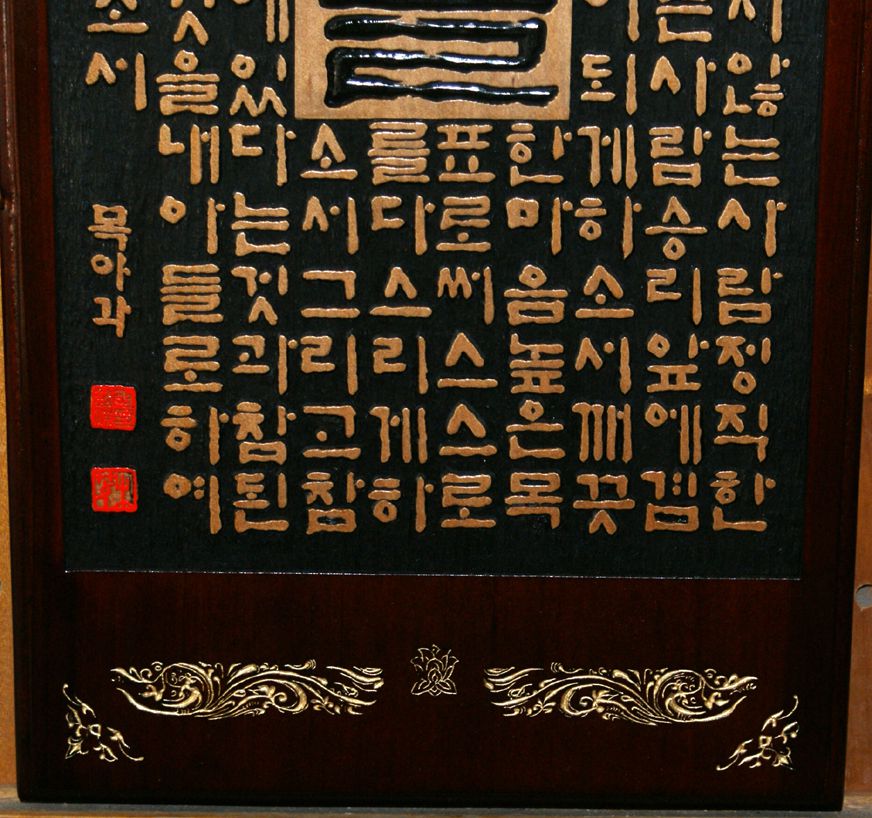 않는사람정직한
는사람승리앞에겸
되게하소서깨끗
한마음높은목
표로써스스로
를다스리게하
소서그리고참
에있다는것과참된
것을내아들로하여
소서
목아각